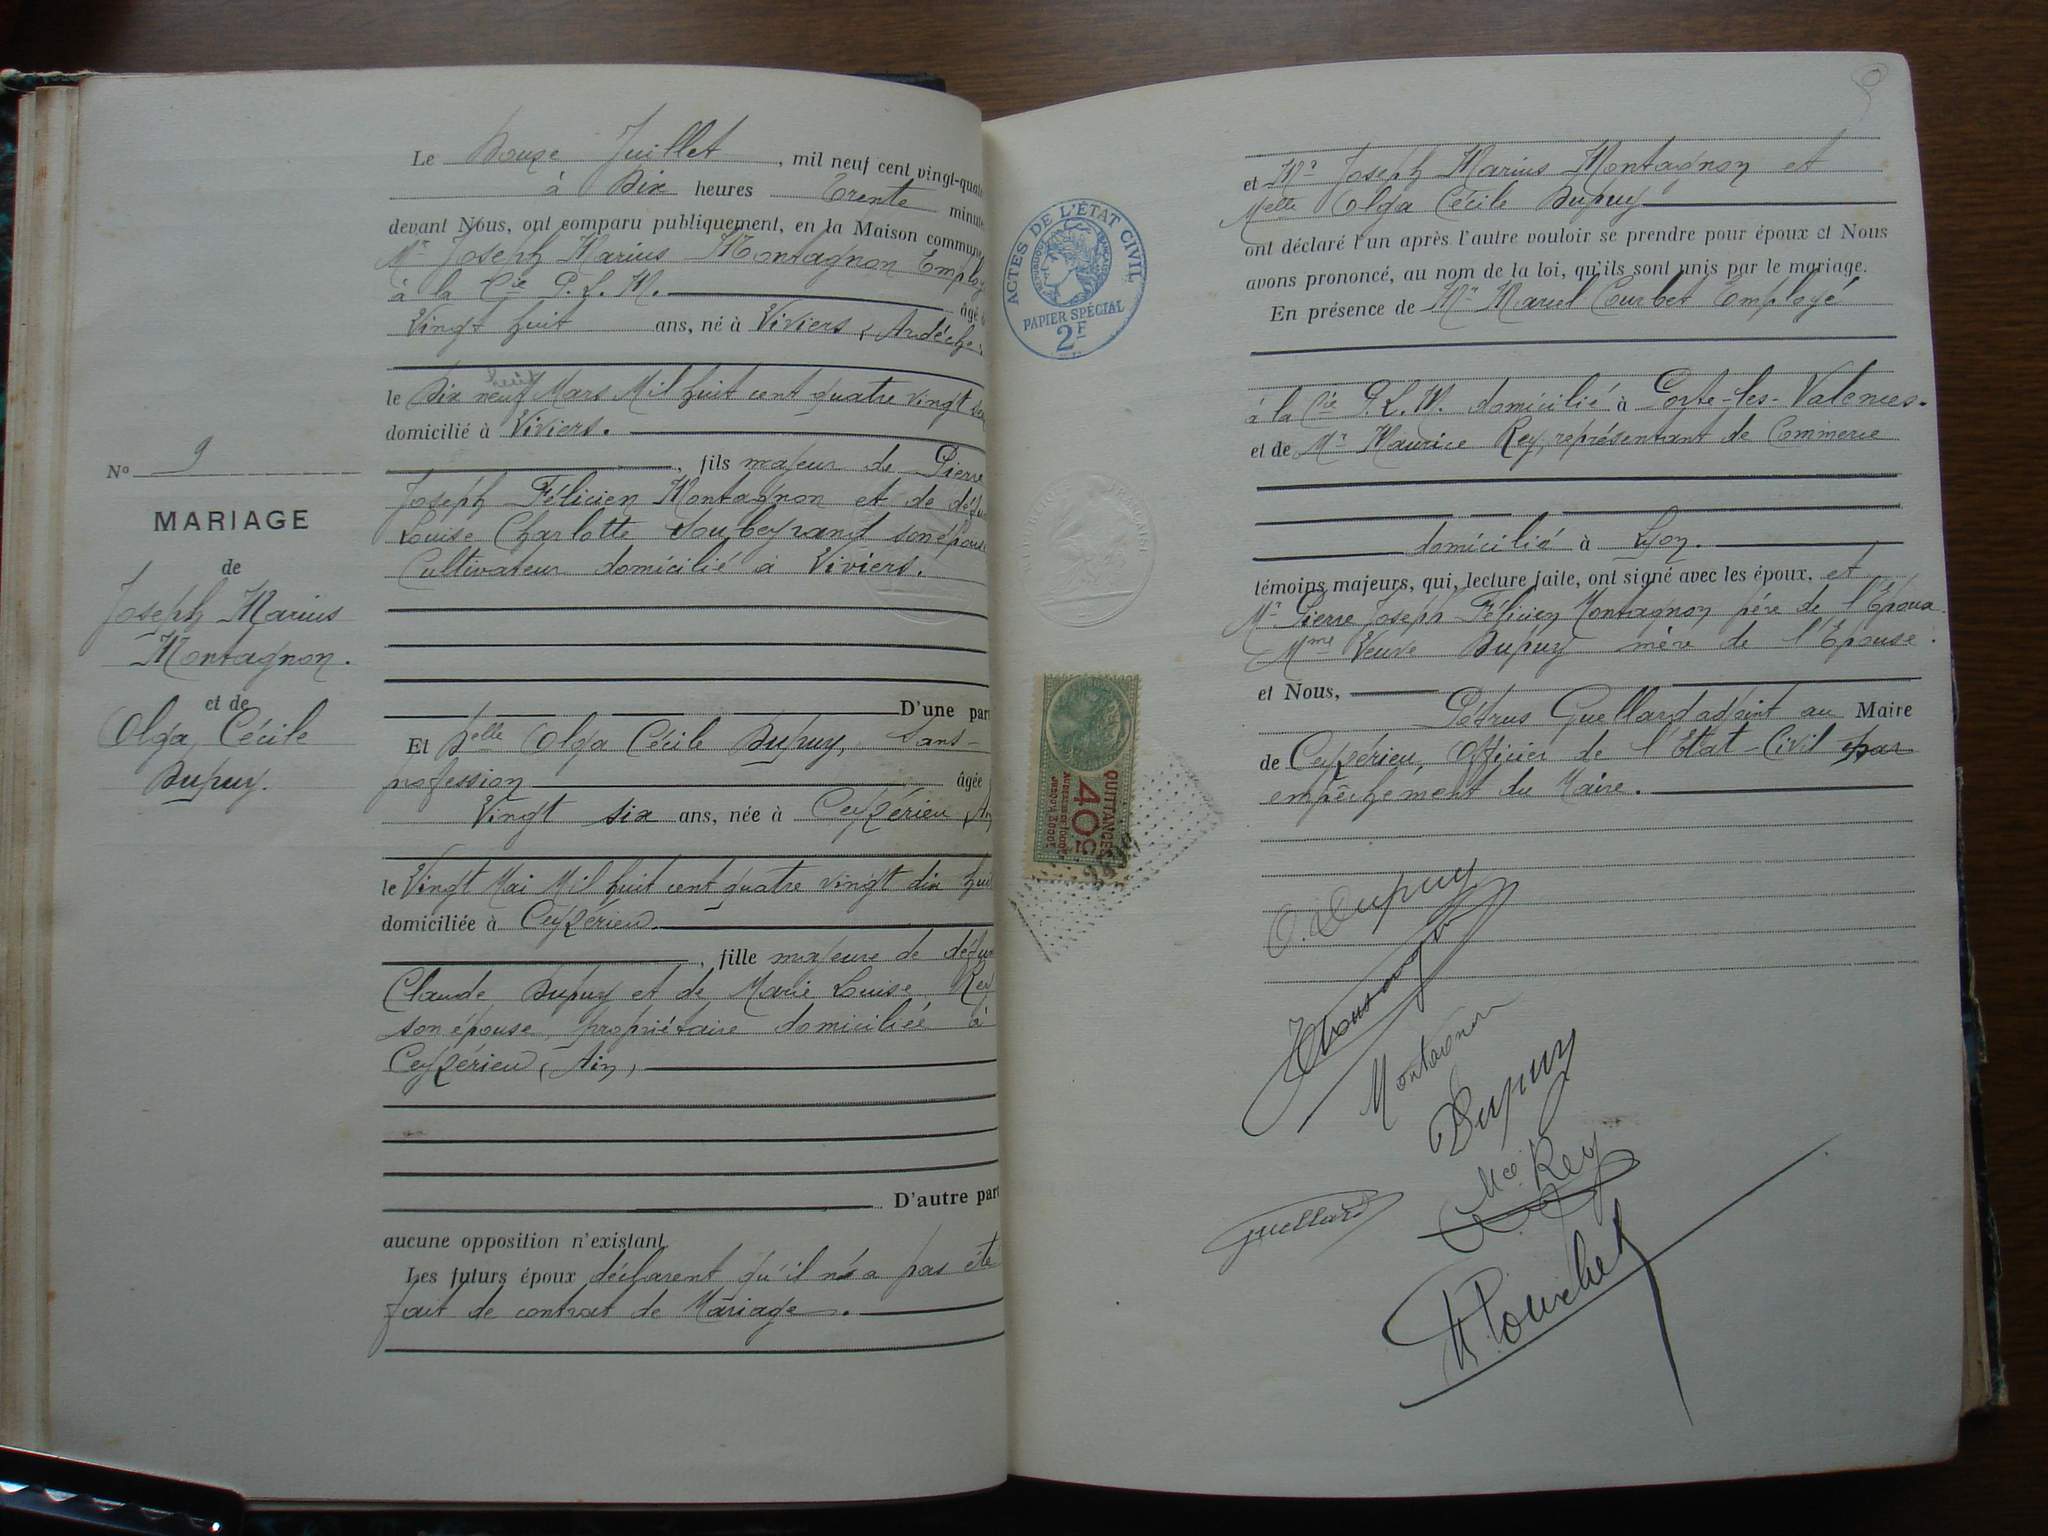 Le Douze Juillet, mil neuf cent vingt-quat
à Dix heures Trente minute
devant Nous, ont comparu publiquement, en la Maison commune
Mr Joseph Marius Montagnon Employ
à la Cie P. L. M. âgé d
Vingt huit ans, né à Viviers (Ardèche)
le Dix neuf Mars Mil huit cent quatre vingt
domicilié à Viviers.
, fils majeur de Pierre
Joseph Félicien Montagnon et de défun
Louise Charlotte Soubeyrand son épouse
Cultivateur domicilié à Viviers.
No 9
MARIAGE
de
Joseph Marius
Montagnon.
et de
Olga, Cécile
Dupuy.
D'une part
Et Delle Olga Cécile Dupuy, Sans-
profession âgée
Vingt six ans, née à Ceyzérieu (Ain
le Vingt Mai Mil huit cent quatre vingt dix huit
domiciliée à Ceyzérieu.
, fille majeure de défun
Claude Dupuy et de Marie Louise Rey
son épouse, propriétaire domiciliée à
Ceyzérieu (Ain)
D'autre part
aucune opposition n'existant
Les futurs époux déclarent qu'il n'a pas été
fait de contrat de Mariage.
ACTES DE L'ÉTAT CIVIL
RÉPUBLIQUE FRANÇAISE
PAPIER SPÉCIAL
2F
QUITTANCES
40c
et Mr Joseph Marius Montagnon et
Melle Olga Cécile Dupuy
ont déclaré l'un après l'autre vouloir se prendre pour époux et Nous
avons prononcé, au nom de la loi, qu'ils sont unis par le mariage.
En présence de Mr Marcel Courbet Employé
à la Cie P. L. M. domicilié à Porte-les-Valences.
et de Mr Maurice Rey, représentant de Commerce
domicilié à Lyon.
témoins majeurs, qui, lecture faite, ont signé avec les époux, et
Mr Pierre Joseph Félicien Montagnon père de l'Epoux
Mme Veuve Dupuy mère de l'Epouse.
et Nous, Pétrus Guellard adjoint au Maire
de Ceyzérieu, Officier de l'Etat-Civil par
empêchement du Maire.
O. Dupuy
Montagnon
Dupuy
Mce Rey
Guellard